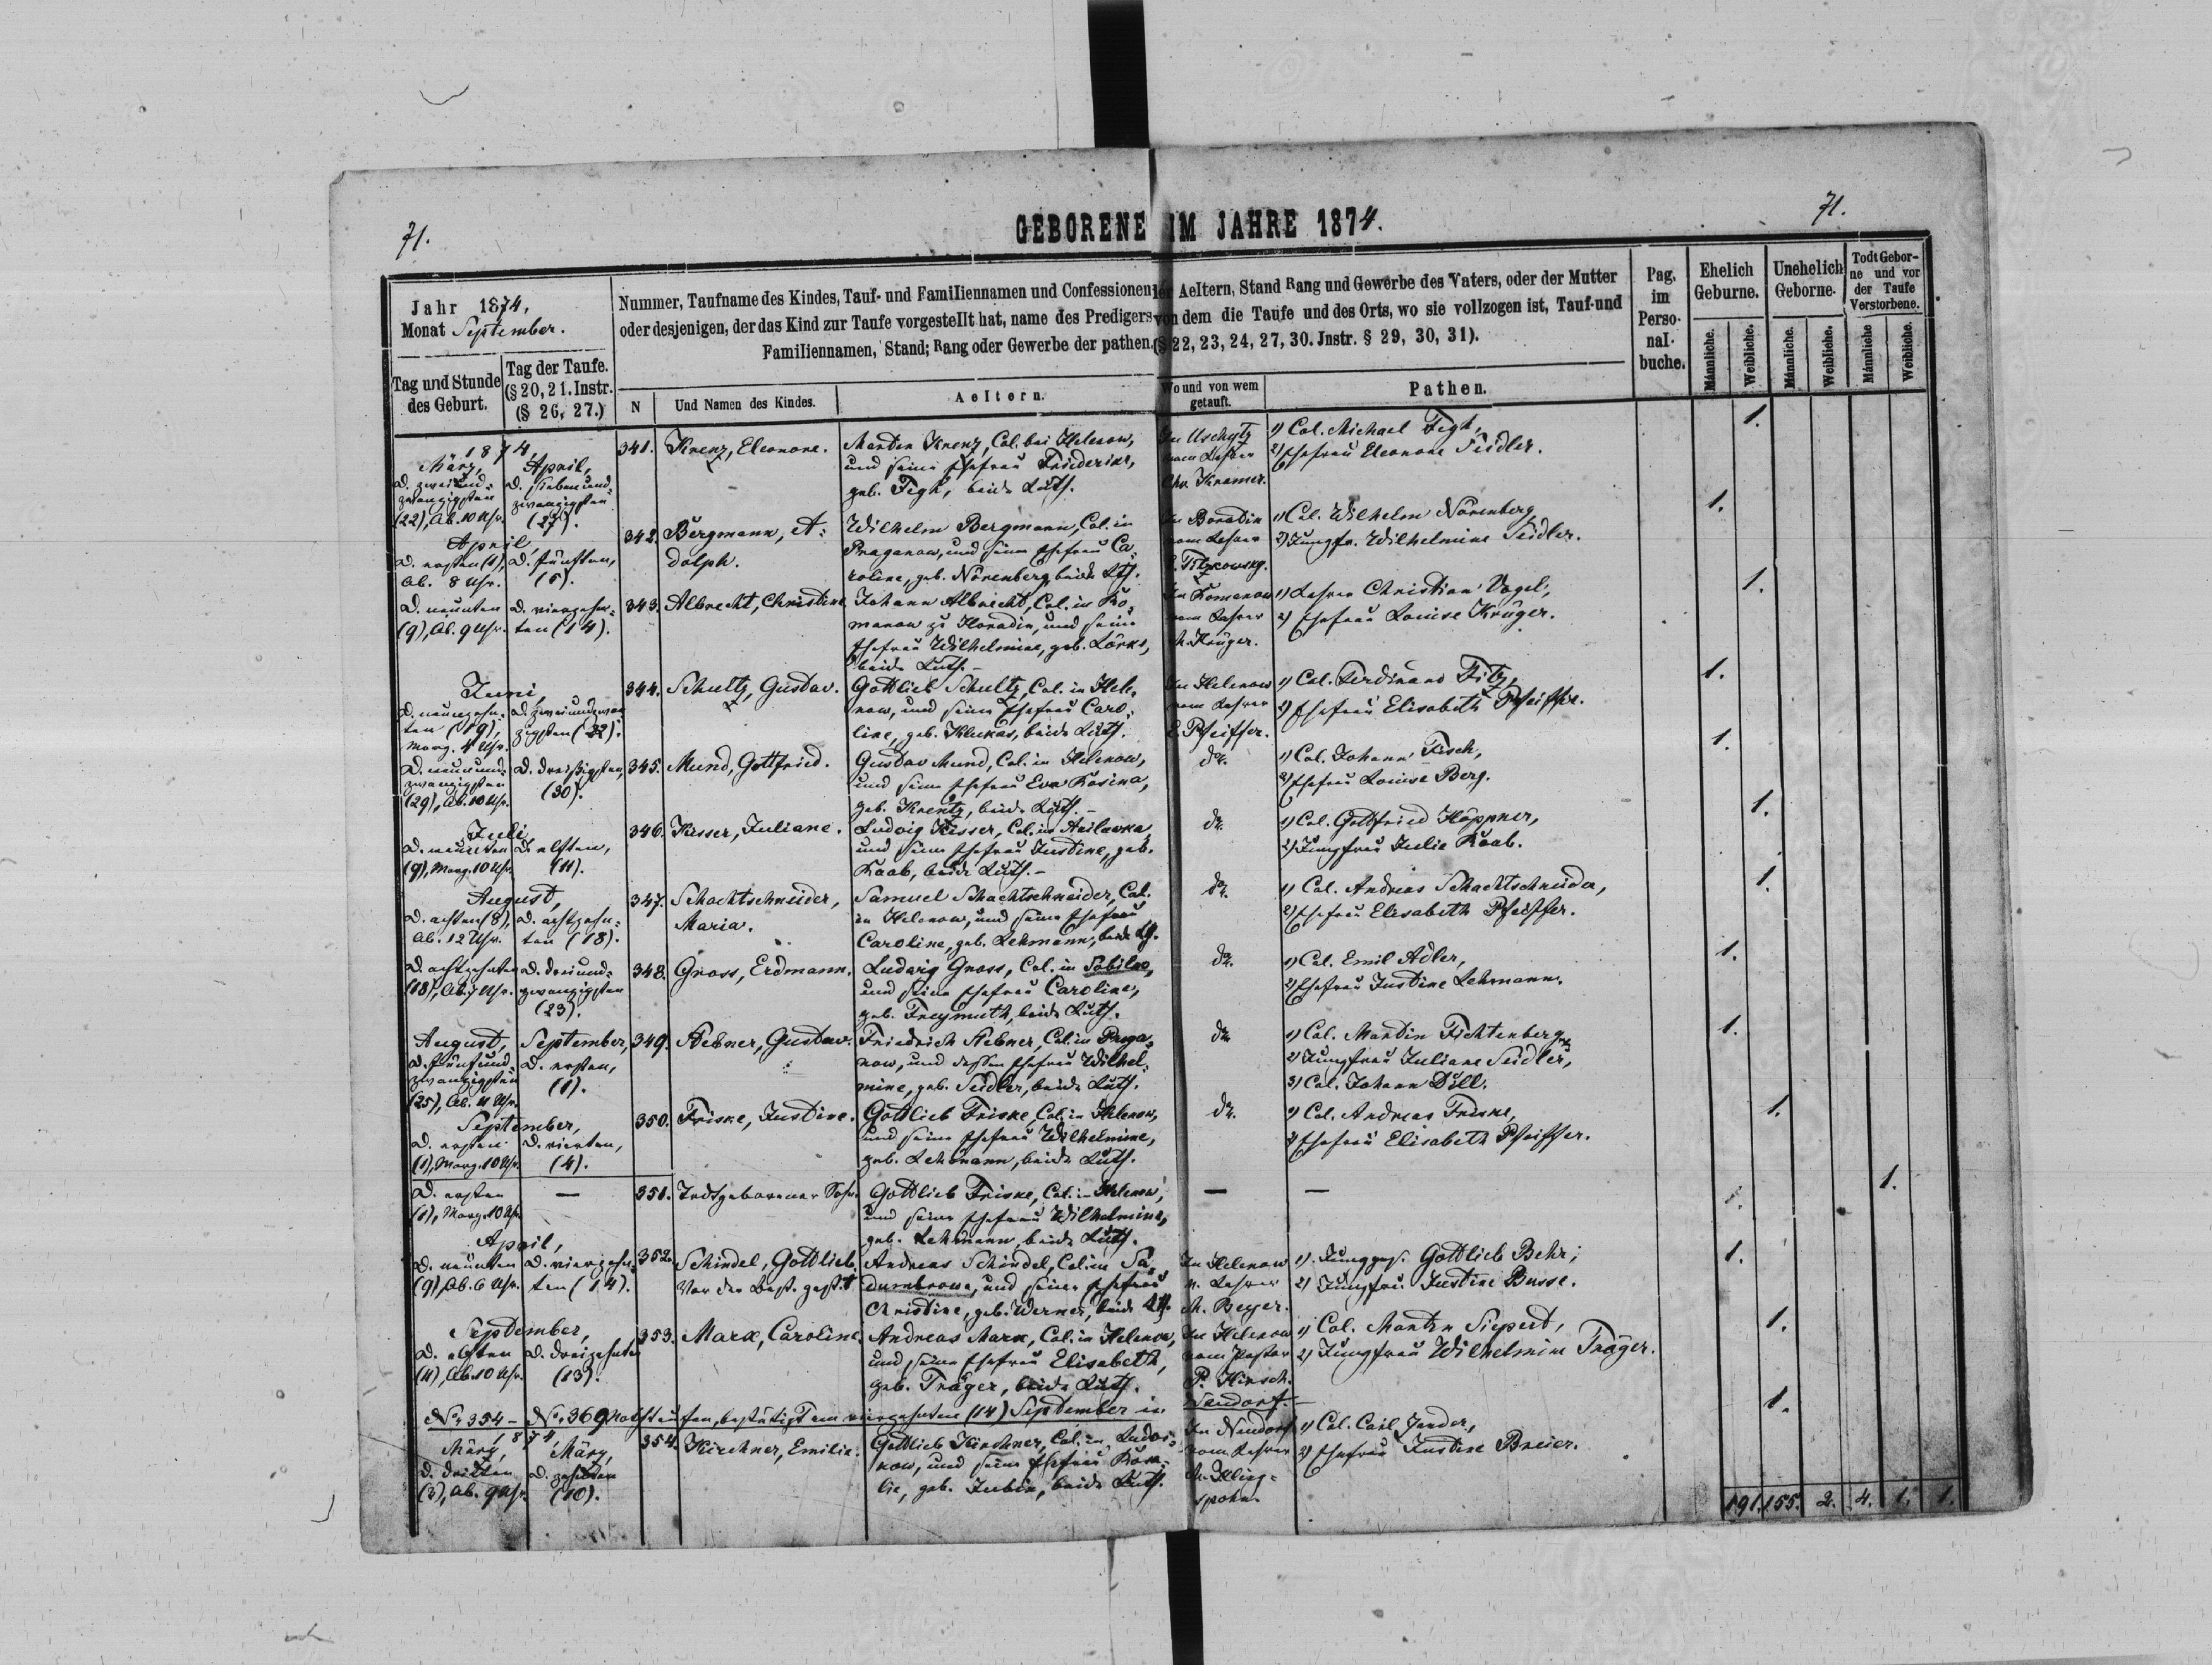 71.
GEBORENE IM JAHRE 1874.
71.
Jahr 1874.
Monat September.
Tag und Stunde
des Geburt.
Tag der Taufe.
(§ 20, 21. Instr.
(§ 26, 27.)
Nummer, Taufname des Kindes, Tauf- und Familiennamen und Confessionen der Aeltern, Stand Rang und Gewerbe des Vaters, oder der Mutter
oder desjenigen, der das Kind zur Taufe vorgestellt hat, name des Predigers von dem die Taufe und des Orts, wo sie vollzogen ist, Tauf-und
Familiennamen, Stand; Rang oder Gewerbe der pathen. (§ 22, 23, 24, 27, 30. Jnstr. § 29, 30, 31).
N
Und Namen des Kindes.
Aeltern.
Wo und von wem
getauft.
Pathen.
Pag.
im
Perso-
nal-
buche.
Ehelich
Geburne.
Unehelich
Geborne.
Todt Gebor-
ne und vor
der Taufe
Verstorbene.
Männliche.
Weibliche.
Männliche.
Weibliche.
Männliche
Weibliche.
1874
März,
d. zweiund-
zwanzigsten
(22), Ab. 10 Uhr.
April,
d. siebenund-
zwanzigsten
(27).
341.
Krenz, Eleonore.
Martin Krenz, Col. bei Helenow,
und seine Ehefrau Friederike,
geb. Fegh, beide Luth.
In Uschytz
vom Lehrer
Chr. Kramer.
1) Col. Michael Fegh,
2) Ehefrau Eleonore Seidler.
1.
April,
d. ersten (1),
Ab. 8 Uhr.
d. fünften,
(5).
342.
Bergmann, A-
dolph.
Wilhelm Bergmann, Col. in
Praganow, und seine Ehefrau Ca-
roline, geb. Nörenberg, beide Lth.
In Boratin
vom Lehrer
1) Col. Wilhelm Nörenberg,
2) Jungfr. Wilhelmine Seidler.
1.
d. neunten
(9), Ab. 9 Uhr.
d. vierzehn-
ten (14).
343.
Albrecht, Christine
Johann Albrecht, Col. in Ro-
manow zu Horadin, und seine
Ehefrau Wilhelmine, geb. Lörks,
beide Luth.-
In Romanow
vom Lehrer
A. Krüger.
1) Lehrer Christian Vogel,
2) Ehefrau Louise Krüger.
1.
Juni,
d. neunzehn-
ten (19),
Morg. 4 Uhr.
d. zweiundzwan
zigsten (22).
344.
Schultz, Gustav.
Gottlieb Schultz, Col. in Hele-
now, und seine Ehefrau Caro-
line, geb. Klukas, beide Luth.
In Helenow
vom Lehrer
E. Pfeiffer.
1) Col. Ferdinand Fitz,
2) Ehefrau Elisabeth Pfeiffer.
1.
d. neunund-
zwanzigsten
(29), Ab. 10 Uhr.
d. dreißigsten,
(30).
345.
Mund, Gottfried.
Gustav Mund, Col. in Helenow,
und seine Ehefrau Eva Rosina,
geb. Krentz, beide Luth.-
do.
1) Col. Johann Fesch,
2) Ehefrau Louise Berg.
1.
Juli,
d. neunten
(9), Morg. 10 Uhr.
d. elften,
(11).
346.
Kisser, Juliane.
Ludwig Kisser, Col. in
und seine Ehefrau Justine, geb.
Raab, beide Luth.-
do.
1) Col. Gottfried Höppner,
2) Jungfrau Julie Raab.
1.
August,
d. achten (8),
Ab. 12 Uhr.
d. achtzehn-
ten (18).
347.
Schachtschneider,
Maria.
Samuel Schachtschneider, Col.
in Helenow, und seine Ehefrau
Caroline, geb. Lehmann, beide Lth.
do.
1) Col. Andreas Schachtschneider,
2) Ehefrau Elisabeth Pfeiffer.
1.
d. achtzehnten
(18), Ab. Uhr.
d. dreiund-
zwanzigsten
(23).
348.
Gross, Erdmann.
Ludwig Gross, Col. in Sobilow,
und seine Ehefrau Caroline,
geb. Freymuth, beide Luth.
do.
1) Col. Emil Adler,
2) Ehefrau Justine Lehmann.
1.
August,
d. fünfund-
zwanzigsten
(25), Ab. 11 Uhr.
September,
d. ersten,
(1).
349.
Hebner, Gustav.
Friedrich Hebner, Col. in Praga-
now, und dessen Ehefrau Wilhel-
mine, geb. Seidler, beide Luth.
do.
1) Col. Martin Fichtenberg,
2) Jungfrau Juliane Seidler,
3) Col. Johann Döll.
1.
September,
d. ersten
(1), Morg. 10 Uhr.
d. vierten,
(4).
350.
Friske, Justine.
Gottlieb Friske, Col. in Helenow,
und seine Ehefrau Wilhelmine,
geb. Lehmann, beide Luth.
do.
1) Col. Andreas Friske,
2) Ehefrau Elisabeth Pfeiffer.
1.
d. ersten
(1), Morg. 10 Uhr.
—
351.
Todtgeborener Sohn.
Gottlieb Friske, Col. in Helenow,
und seine Ehefrau Wilhelmine,
geb. Lehmann, beide Luth.
—
—
1.
April,
d. neunten
(9), Ab. 6 Uhr.
d. vierzehn-
ten (14).
352.
Schindel, Gottlieb.
Vor der Best. gest. †
Andreas Schindel, Col. in Sa-
dumbrowe, und seine Ehefrau
Christine, geb. Werner, beide Lth.
In Helenow
v. Lehrer
M. Beyer.
1) Jungges. Gottlieb Behr;
2) Jungfrau Justine Busse.
1.
September,
d. elften
(11), Ab. 10 Uhr.
d. dreizehnten
(13).
353.
Marx, Caroline.
Andreas Marx, Col. in Helenow,
und seine Ehefrau Elisabeth,
geb. Träger, beide Luth.
In Helenow
vom Pastor
P. Hirsch.
1) Col. Martin Siepert,
2) Jungfrau Wilhelmine Träger.
1.
No. 354 - No. 369 Nothtaufen, bestätigt am vierzehnten (14) September in Neudorf.-
1874
März,
d. dritten
(3), Ab. 9 Uhr.
März,
d. zehnten
(10).
354.
Kirchner, Emilie.
Gottlieb Kirchner, Col. in Ludwi-
kow, und seine Ehefrau Rosa-
lie, geb. Jubin, beide Luth.
In Neudorf
vom Lehrer
1) Col. Carl Jander,
2) Ehefrau Justine Breier.
1.
191. 155. 2. 4. 1. 1.